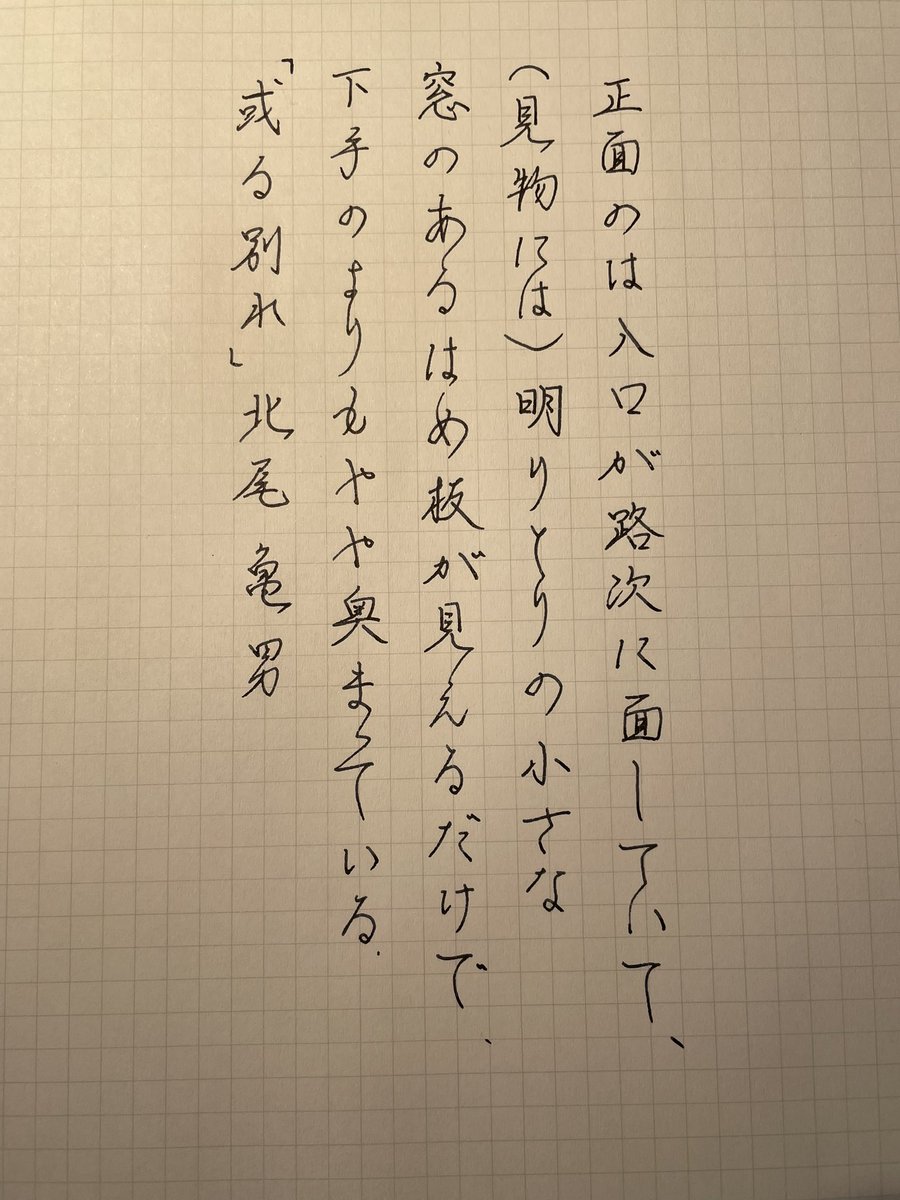 正面のは入口が路次に面していて、
（見物には）明りとりの小さな
窓のあるはめ板が見えるだけで、
下手のよりもやや奥まっている.
「或る別れ」北尾亀男